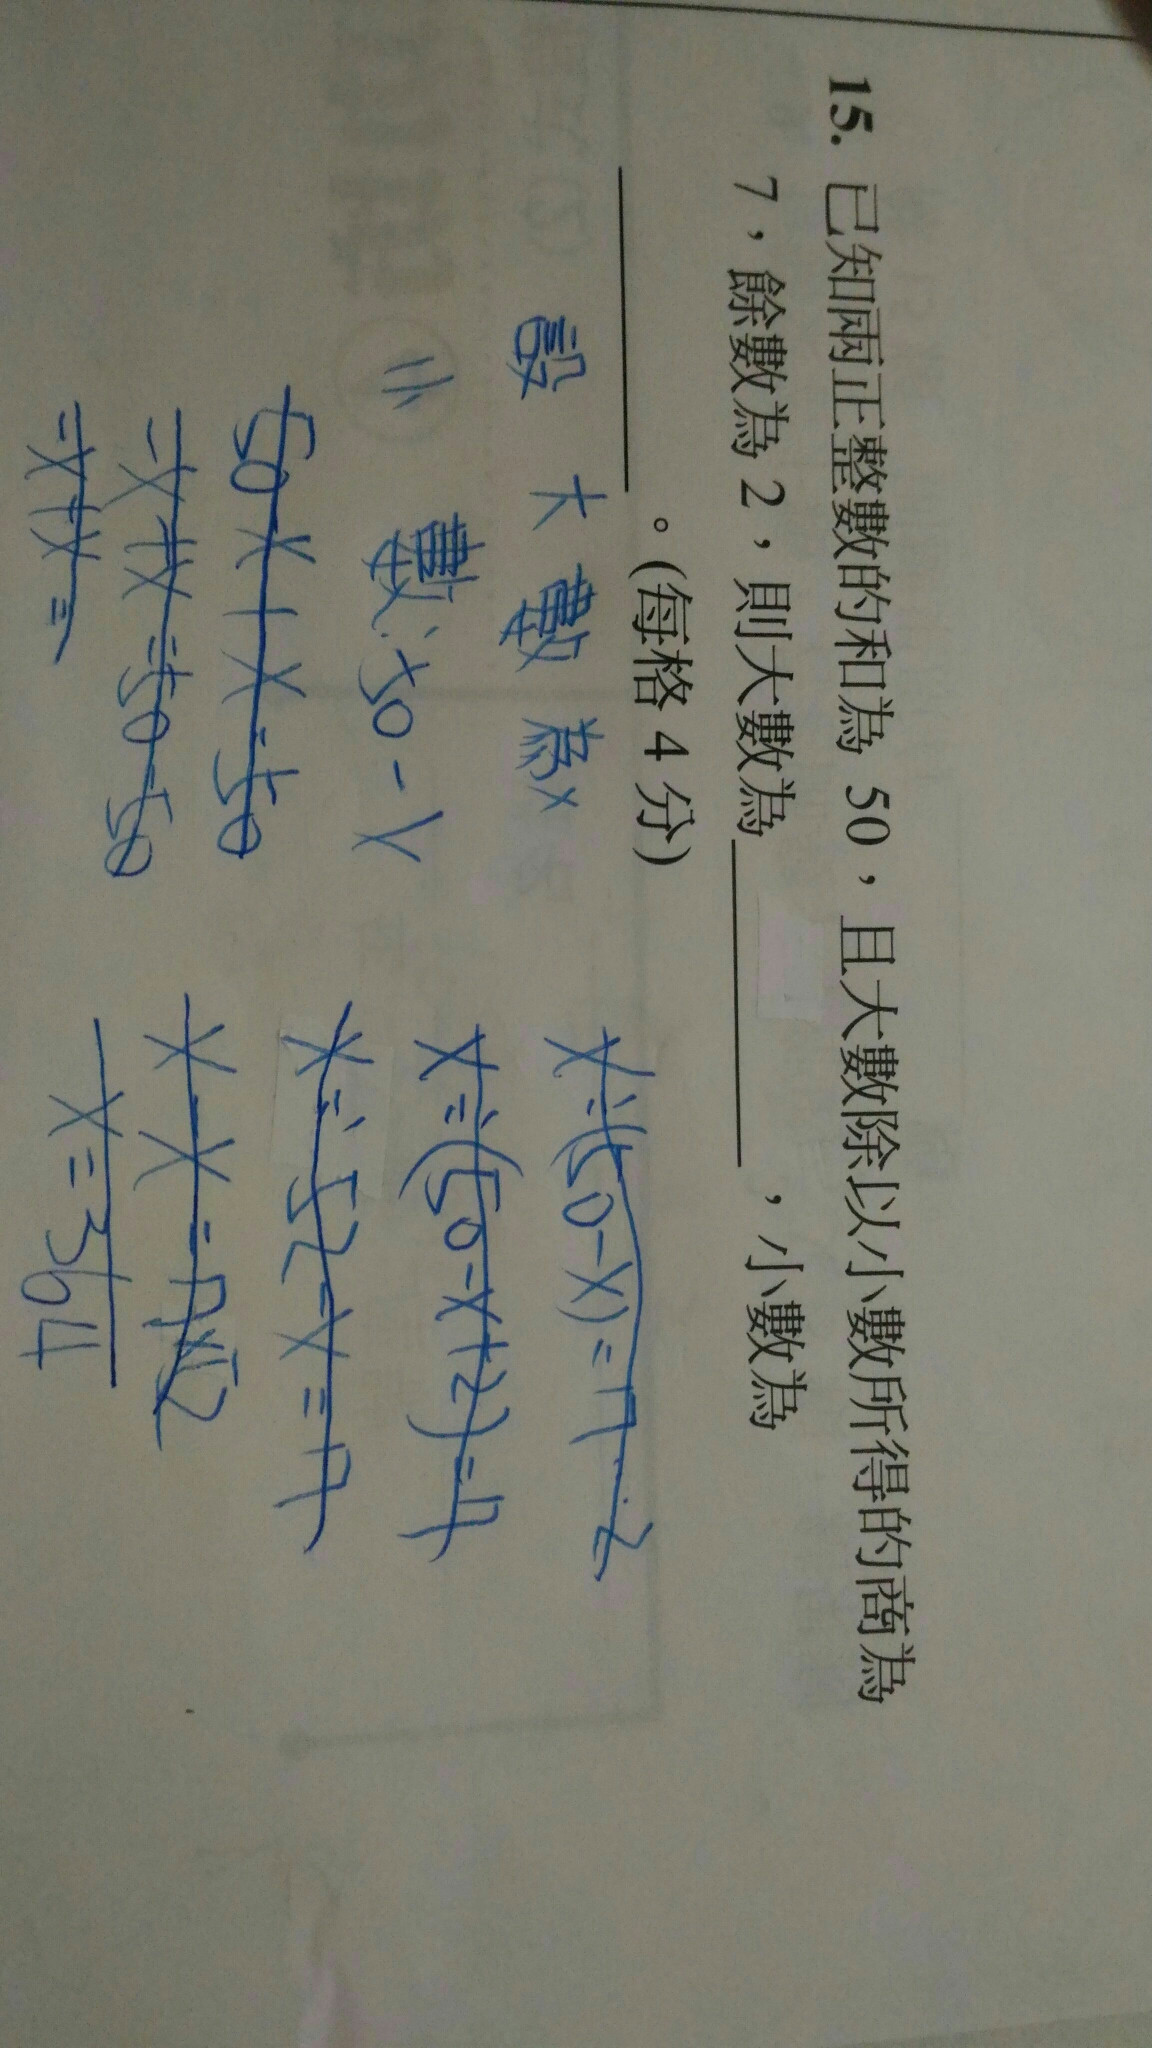 15. 已知兩正整數的和為 50，且大數除以小數所得的商為
7，餘數為 2，則大數為________，小數為
________。(每格 4 分)
設 大數為x
小 數：50-x
50x+x=50
-x+x=50-50
-x+x=
x÷(50-x)=7…2
x÷(50-x+2)=7
x÷52-x=7
x-x=7×52
x=364